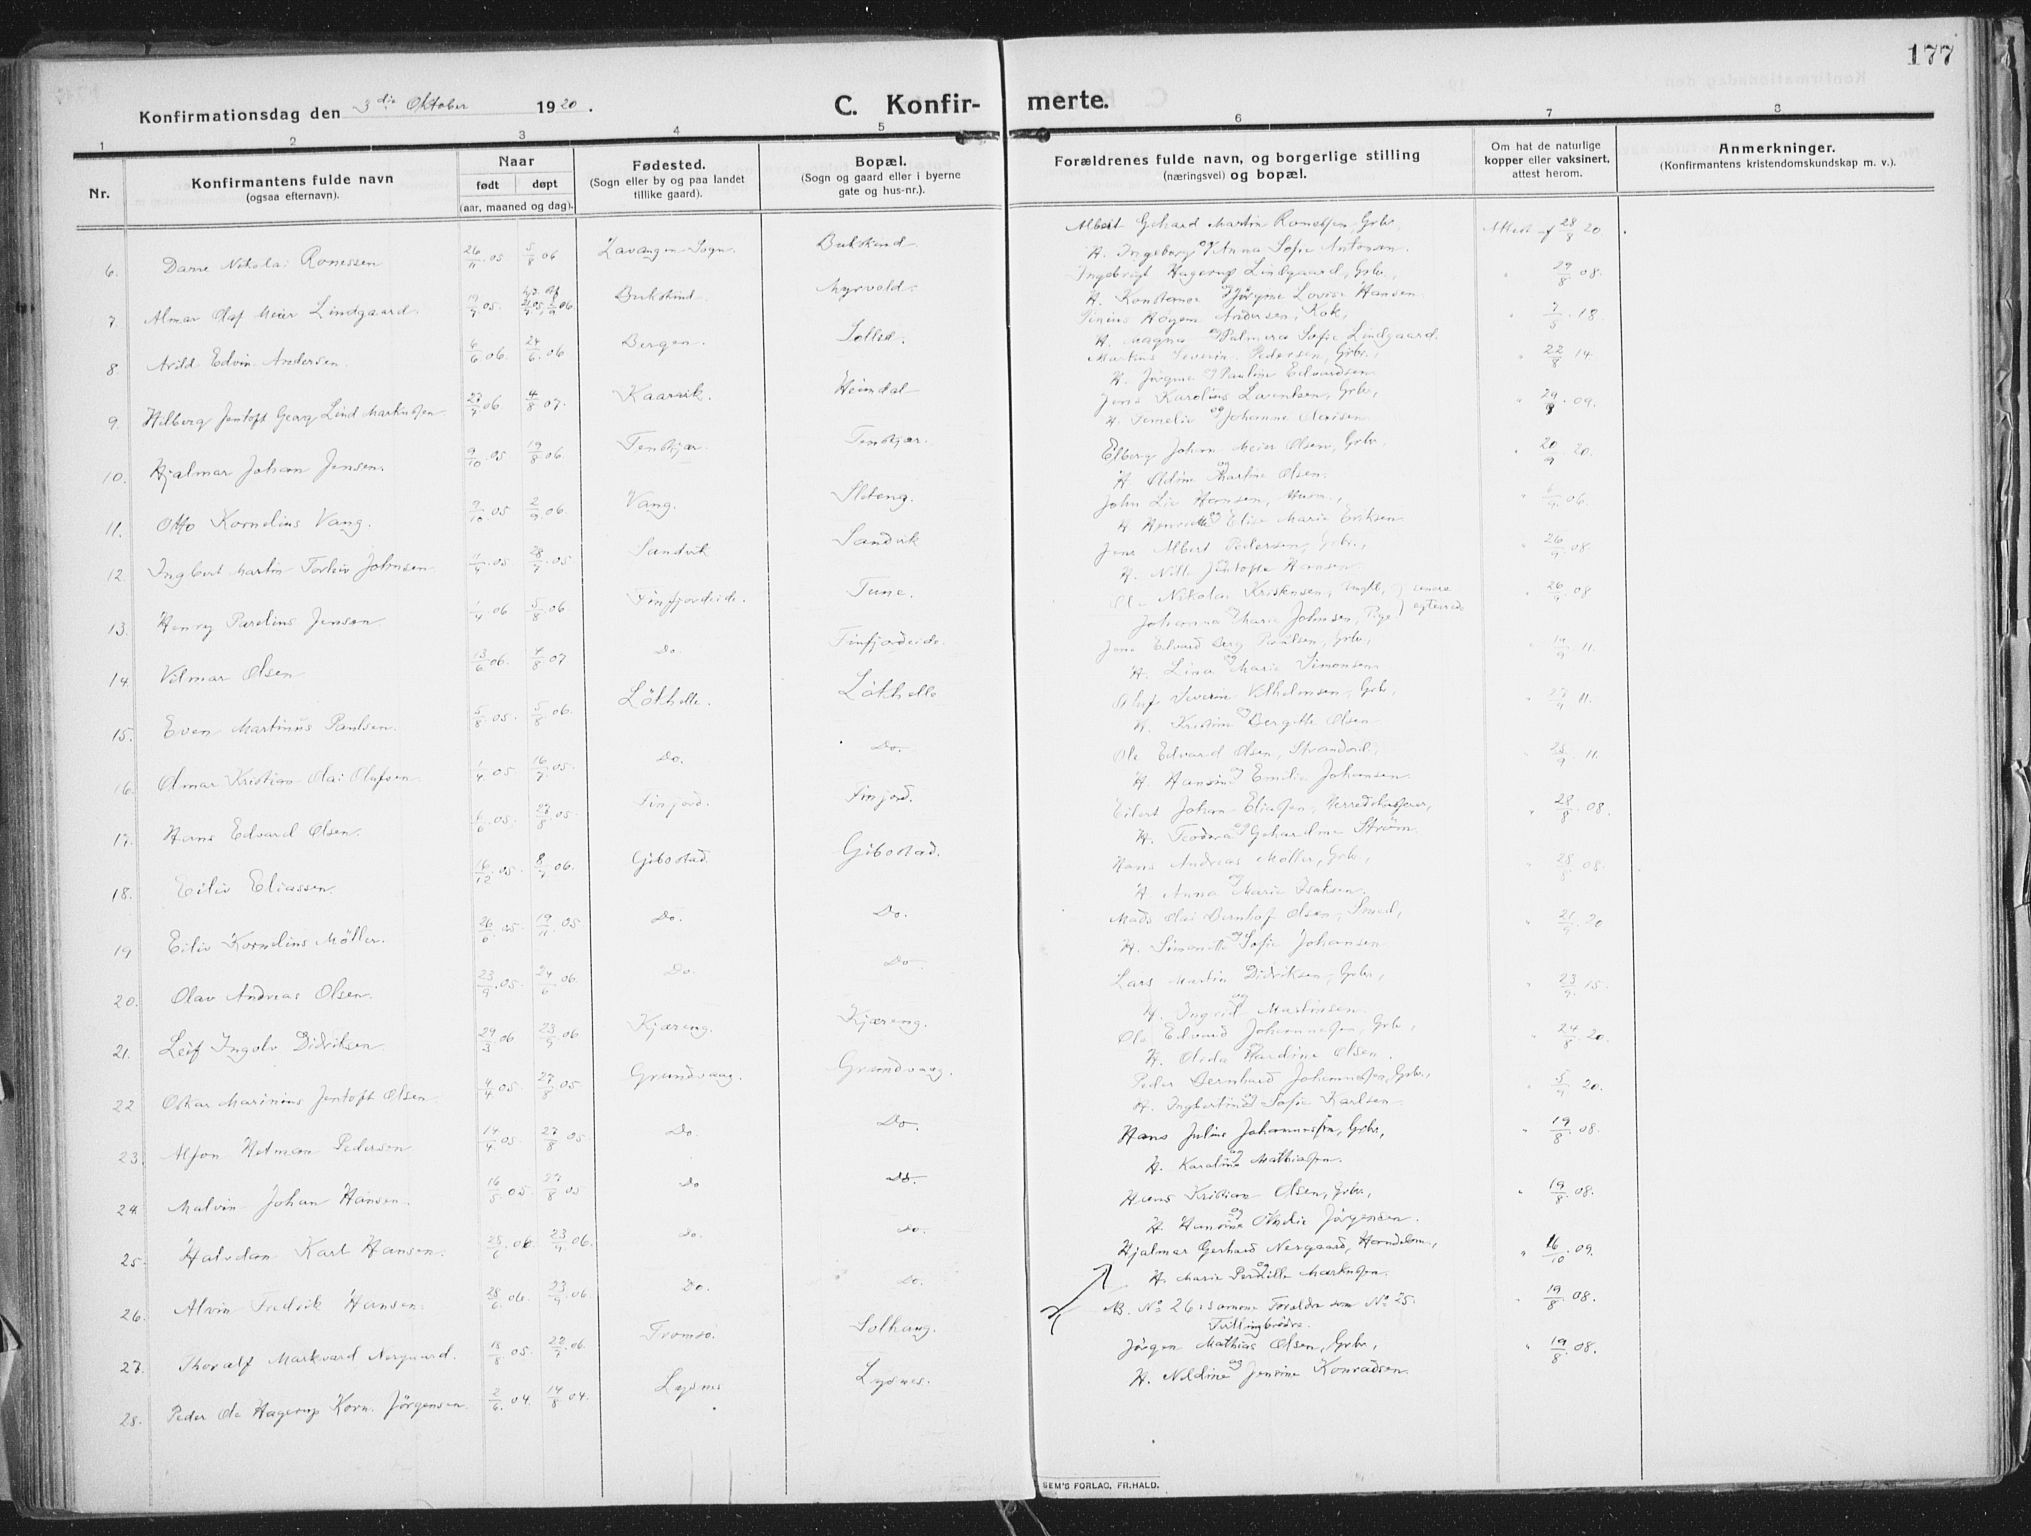 177
Konfirmationsdag den 3die Oktober 1920.
C. Konfir- merte.
1 2 3 4 5 6 7 8
Nr.
Konfirmantens fulde navn
(ogsaa efternavn).
Naar
født døpt
(aar, maaned og dag).
Fødested.
(Sogn eller by og paa landet
tillike gaard).
Bopæl.
(Sogn og gaard eller i byerne
gate og hus-nr.).
Forældrenes fulde navn, og borgerlige stilling
(næringsvei) og bopæl.
Om hat de naturlige
kopper eller vaksinert,
attest herom.
Anmerkninger.
(Konfirmantens kristendomskundskap m. v.).
6. Nikolai 26/11.05 5/8 06 Lavangen Sogn. Albert Gehard Martin Grbr. Attest af 28/8 20
H. Ingeborg og Anna Sofie Antonsen.
7. Almar Olaf Meier Lindgaard. Myrvold. Ingebrigt Hagerup Lindgaard, Grbr., " 29/8 08.
H. og Jørgine Lovise Hansen
8. Arild Edvin Andersen. 6/6 06. 24/6 06 Bergen. Andersen, Kok, " 7/5 18
H. Magna og Palmera Sofie Lindgaard.
9. Hilberg Jentoft Georg Lind Markussen 27/7 06 4/8 07. Kaarvik. Heimdal Martins Severin Pedersen, Grbr., " 22/8 14.
H. Jørgine og Pauline Edvardsen
10. Hjalmar Johan Jensen. 9/10 05 19/8 06. Tenskjær. Tenskjær. Jens Karolius Lorentsen, Grbr., " 29/8 09.
H. og Johanne
11. Otto Kornelius Vang. 9/10 05 2/9 06. Vang. Elberg Johan Meier Olsen, Grbr., " 20/9 20.
H. Oldine og Martine Olsen.
12. Ingbert Martin Torleiv Johnsen 1/4 05 28/7 05 Sandvik Sandvik John Hansen, 06.
H. og Elise Marie Eriksen
13. Henry Parelius Jensen. 1/4 06 5/8 06. Finfjordeide. Tune. Jens Albert Pedersen, Grbr., " 26/9 08.
H. Jentofte Hansen
14 Vilmar Olsen 13/6 06. 4/8 07 Do. Finfjordeide. Ole Nikolai Kristensen, senere
Johanna og Marie Johnsen, Pige egtevied " 26/9 08
15. Even Martinus Paulsen. 5/8 05. 5/8 06. Løkhelle. Løkhelle Jens Edvard Berg Paulsen, Grbr., " 14/9 11.
H. Lina og Marie Simonsen
16. Olmar Kristian Olai Olafsen. 1/4 05 16/7 05. Do. Do. Olaf Severin Vilhelmsen, Grbr., " 27/9 11.
H. Kristine og Bergitte Olsen
17. Hans Edvard Olsen. 6/6 05. 27/8 05. Finfjord. Finfjord. Ole Edvard Olsen, Strandsid., " 28/9 11.
H. Hansine og Emilie Johansen.
18. Eiliv Eliassen. 16/12 05. 8/7 06. Gibostad. Gibostad. Eilert Johan Eliassen, Herredskasserer, " 28/8 08.
H. Teodora og Gehardine Strøm.
19 Eiliv Kornelius Møller. 26/6 05. 19/11 05 Do. Do. Hans Andreas Møller, Grbr., " 28/8 08.
H. Anna og Marie Isaksen.
20. Olav Andreas Olsen. 23/9 05. 24/6 06. Do. Do Mads Olai Bernhof Olsen, Smed, " 21/9 20
H. Simonette og Sofie Johansen
21. Leif Ingolv Didriksen. 29/3 06. 23/9 06 Kjæreng. Kjæreng. Lars Martin Didriksen, Grbr., " 23/9 15.
H. Ingrid og Martinsen.
22 Oskar Marinius Jentoft Olsen. 4/4 05. 27/8 05 Grundvaag. Grundvaag. Ole Edvard Johannessen, Grbr., " 24/8 20.
H. Olida og Hardine Olsen.
23. Alfon Hetman Pedersen 14/4 05. 27/8 05 Do. Do. Peder Bernhard Johannessen, Grbr., " 5/9 20.
H. Ingbertine og Sofie Karlsen
24. Malvin Johan Hansen. 16/5 05. 27/8 05 Do Do. Hans Julius Johannessen, Grbr., " 19/8 08.
H. Karoline og Mathiassen.
25. Halvdan Karl Hansen. 28/6 06 23/9 06. Do. Do. Hans Kristian Olsen, Grbr., " 19/8 08.
H. Hansine og Othelie Jørgensen.
26. Alvin Fredrik Hansen. 28/6 06. 23/9 06. Do. Do. Hjalmar Gerhard Norgaard, Handelsm., " 16/10 09.
H. Marie Pernille og Markussen.
27. Thoralf Markvard Norgaard. 18/8 05. 22/7 06. Tromsø. Solhaug. NB. No 26: samme Forældre som No 25. " 19/8 08.
Tvillingbrødre.
28. Peder Ole Hagerup Korn. Jørgensen. 2/6 04. 14/8 04. Lysnes Lysnes. Jørgen Mathias Olsen, Grbr., " 19/8 08.
H. Neldine og Jensine Konradsen.
SEM'S FORLAG, FR.HALD.